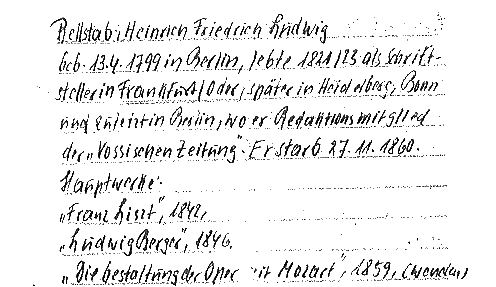 Rellstab, Heinrich Friedrich Ludwig
Geb. 13.4. 1799 in Berlin, lebte 1821/23 als Schrift-
steller in Frankfurt/Oder, später in Heidelberg, Bonn
und zuletzt in Berlin, wo er Redaktionsmitglied
der „Vossischen Zeitung". Er starb 27. 11. 1860.
Hauptwerke:
„Franz Liszt", 1842,
„Ludwig Berger", 1846.
„Die Gestaltung der Oper seit Mozart", 1859, (wenden)